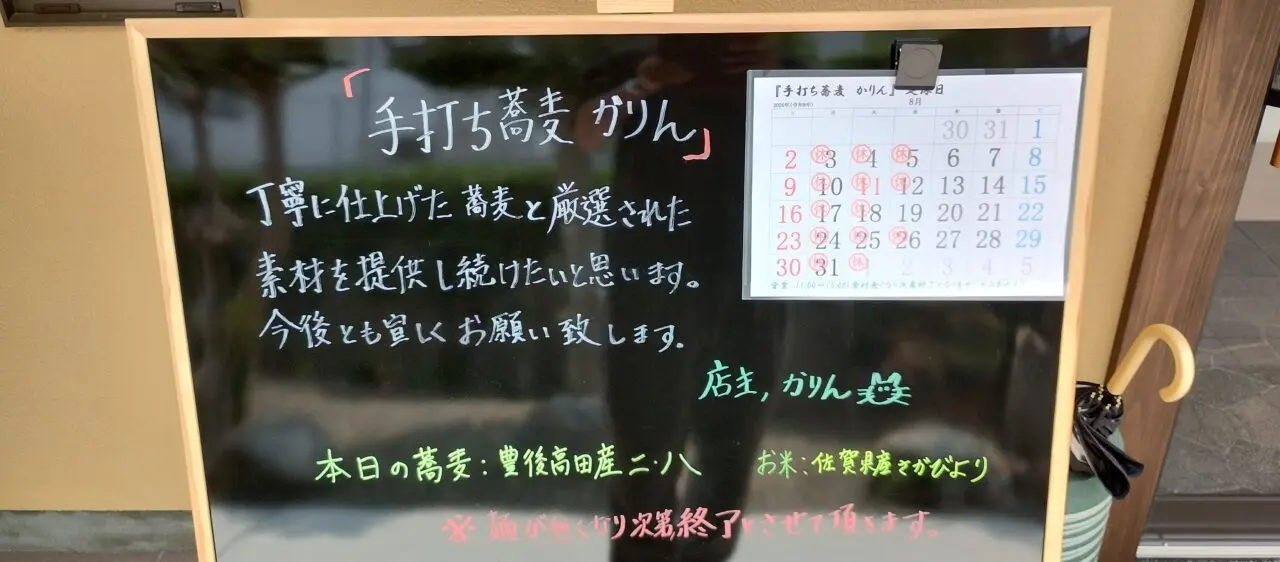 「手打ち蕎麦 かりん」
丁寧に仕上げた蕎麦と厳選された
素材を提供し続けたいと思います。
今後とも宜しくお願い致します。
店主,かりん
本日の蕎麦:豊後高田産二・八 お米:佐賀県産さがびより
※麺が無くなり次第,終了とさせて頂きます。
『手打ち蕎麦 かりん』 定休日
8月
木
30 31 1
2 休 3 休 4 休 5 6 7 8
9 休 10 休 11 休 12 13 14 15
16 休 17 休 18 19 20 21 22
23 休 24 休 25 休 26 27 28 29
30 休 31 休 1 2 3 4 5